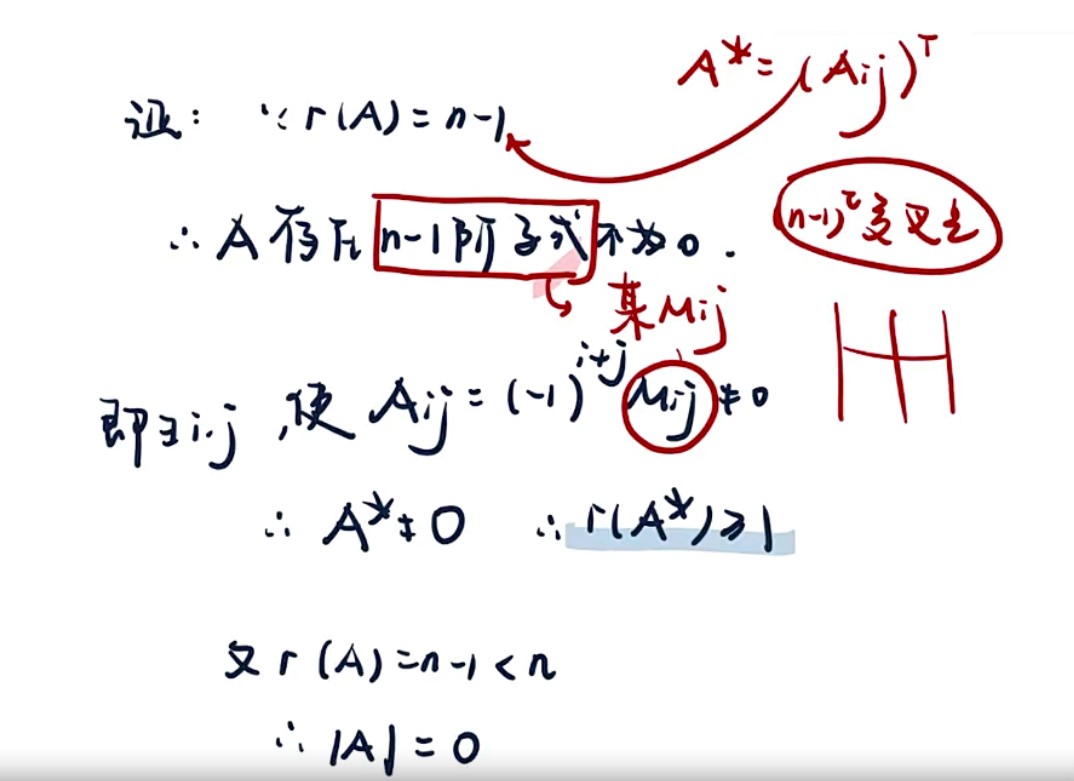 A* = (Aij)ᵀ
证: ∵ r(A) = n-1
∴ A 存在 n-1 阶子式 不为 0.
(n-1)
某 Mij
即∃ i.j, 使 Aij = (-1)^{i+j} Mij ≠ 0
∴ A* ≠ 0 ∴ r(A*) ⩾ 1
又 r(A) = n-1 < n
∴ |A| = 0